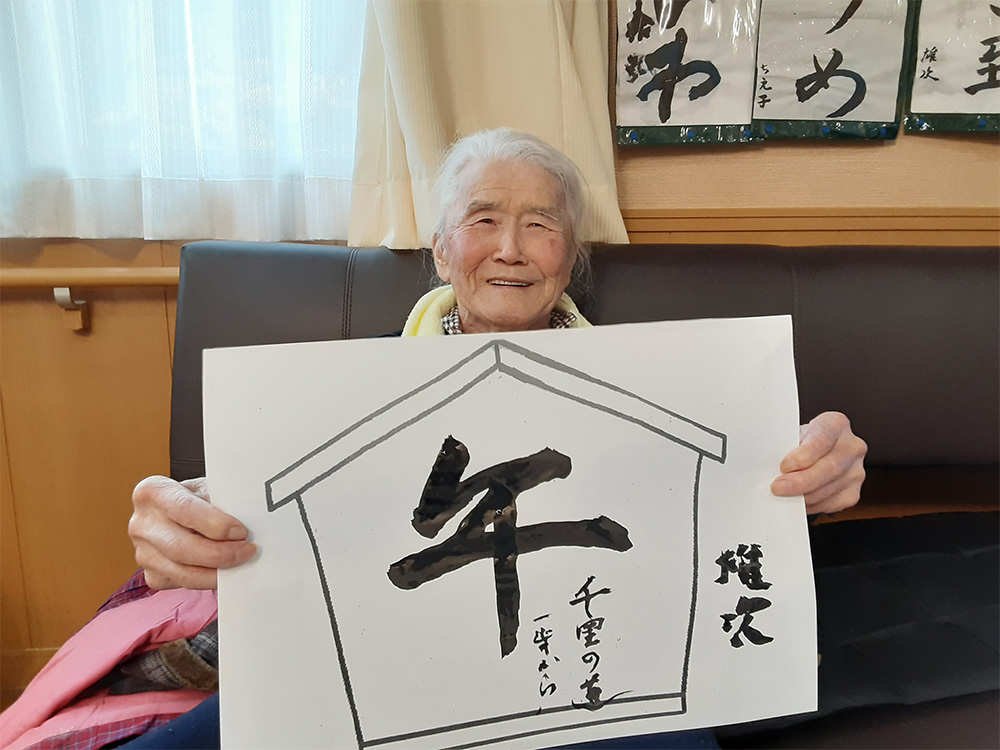 わ
め
ちえ子
至
雄次
午
千里の道
一歩から
雄次